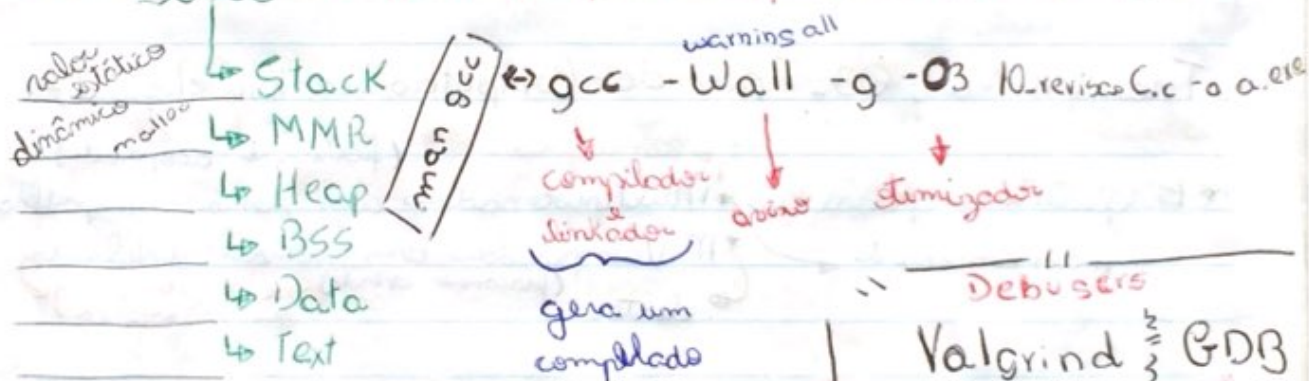 valor estático
dinâmico malloc
Stack
MMR
Heap
BSS
Data
Text
man gcc
warning all
gcc -Wall -g -O3 10_revisaoC.c -o a.exe
compilador e linkador
aviso
otimizador
gera um
compilado
Debugers
Valgrind
GDB